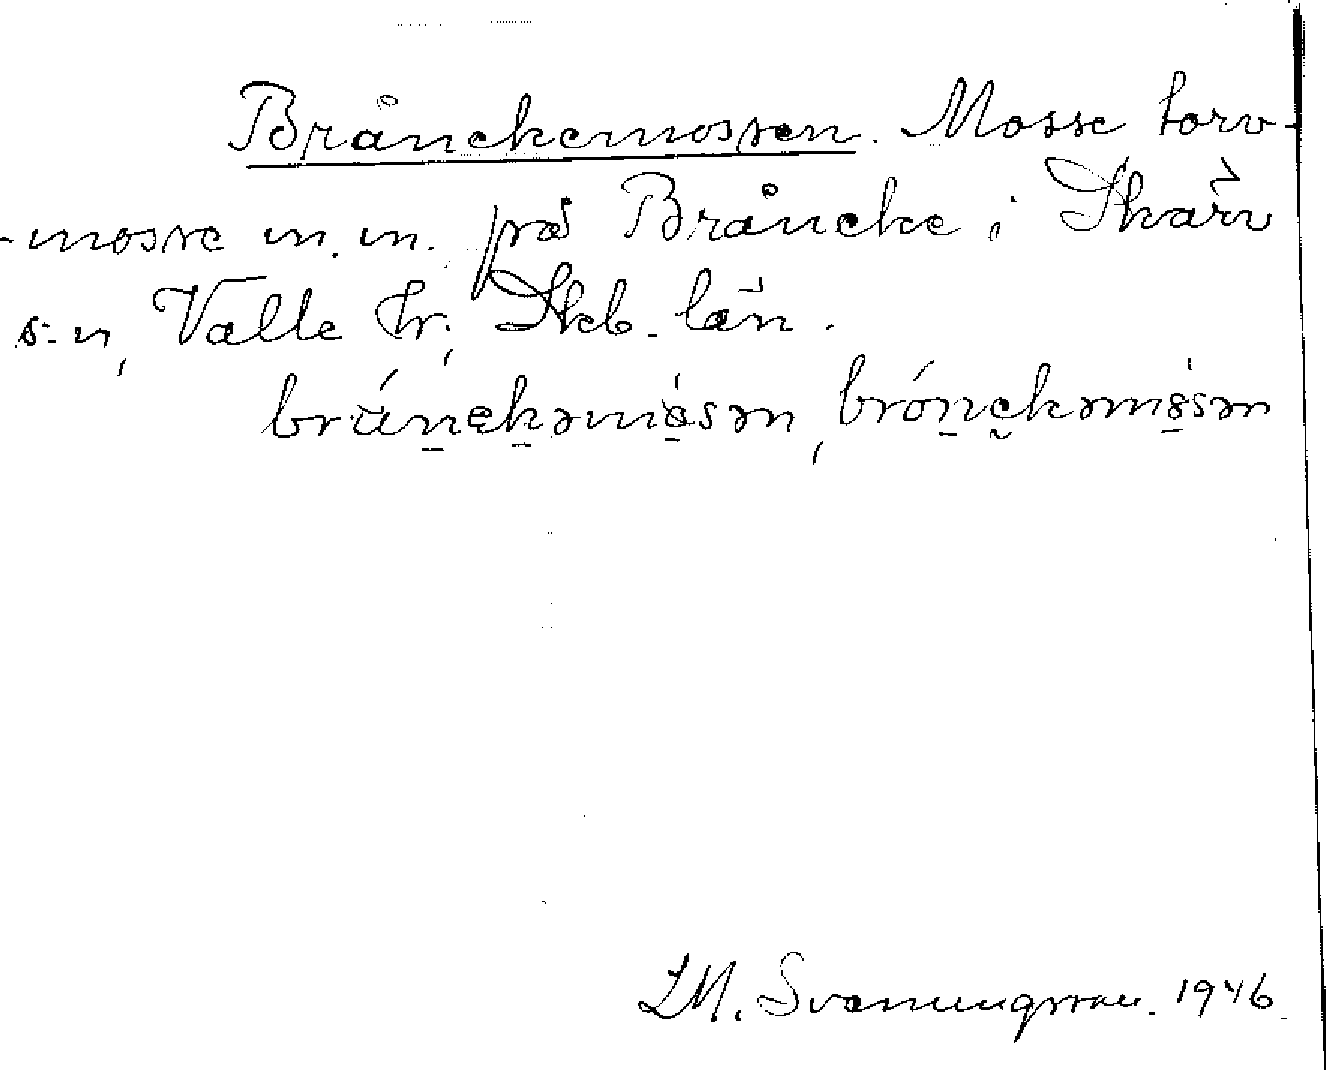 Brånekemossen. Mosse torv-
-mosse m.m. på Bråneke i Skärv
s-n, Valle hr, Skb. län.
bränekəmosən, brónekəmosən
J.M. Svenungsson. 1946